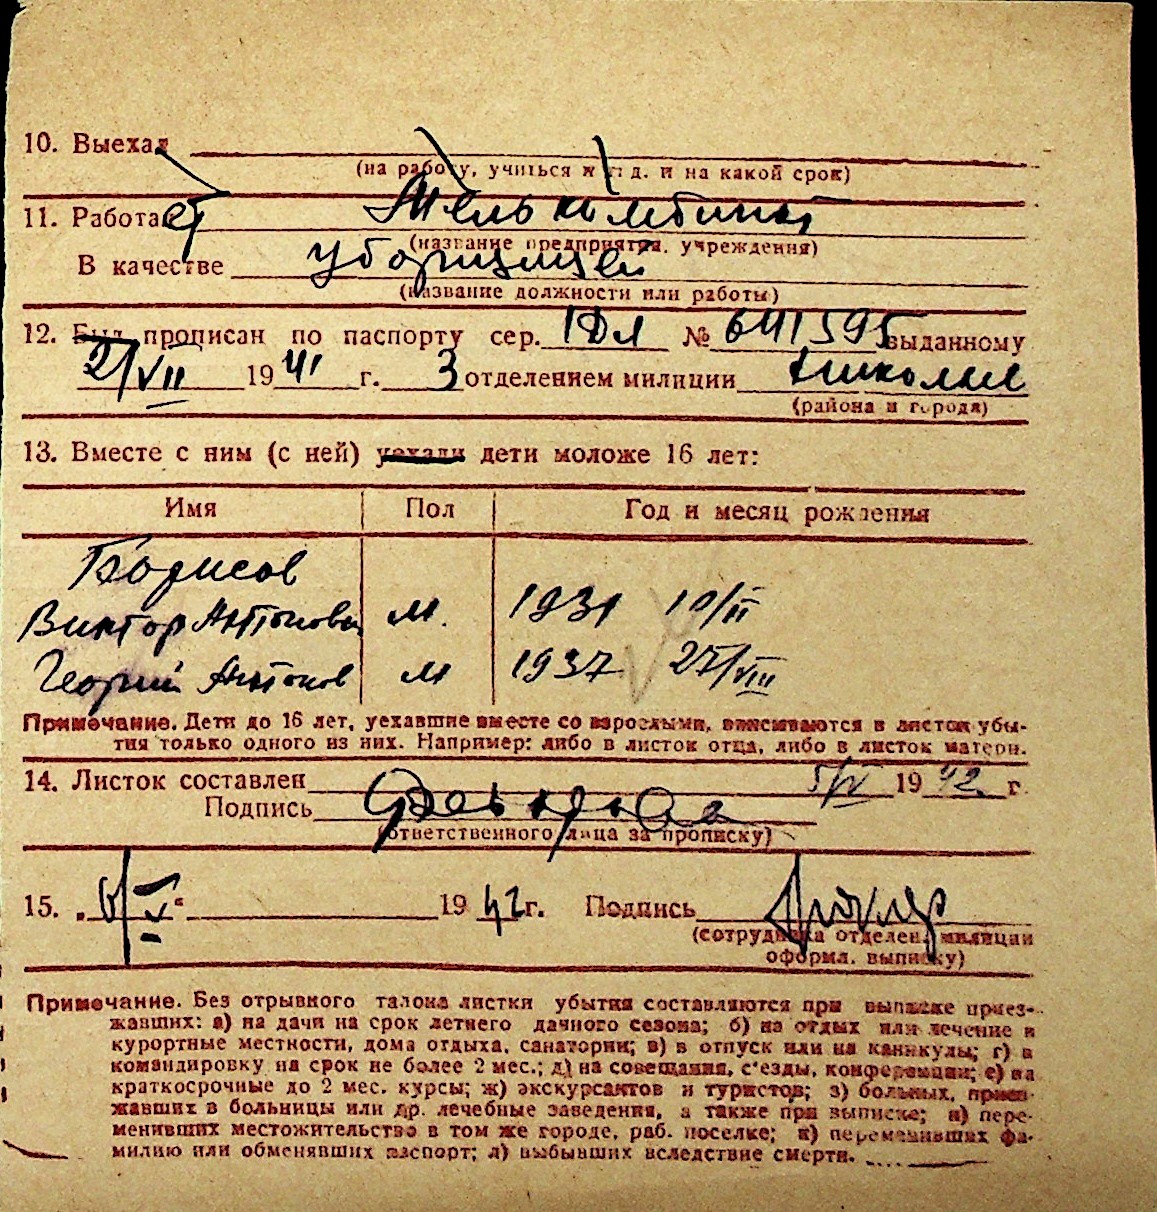 10. Выехал
(на работу, учиться и т. д. и на какой срок)
11. Работает Мелькомбинат
(название предприятия, учреждения)
В качестве уборщицей
(название должности или работы)
12. Был прописан по паспорту сер. IДЛ № 641595 выданному
21/VII 1941 г. 3 отделением милиции
(района и города)
13. Вместе с ним (с ней) уехали дети моложе 16 лет:
Имя Пол Год и месяц рождения
Борисов
Виктор Антонович м. 1931 10/II
Георгий Антонов м 1937 27/VIII
Примечание. Дети до 16 лет, уехавшие вместе со взрослыми, вписываются в листок убы-
тия только одного из них. Например: либо в листок отца, либо в листок матери.
14. Листок составлен 5/IV 1942 г.
Подпись
(ответственного лица за прописку)
15. „6/V“ 1942 г. Подпись
(сотрудника отделен. милиции
оформл. выписку)
Примечание. Без отрывного талона листки убытия составляются при выписке приез-
жавших: а) на дачи на срок летнего дачного сезона; б) на отдых или лечение в
курортные местности, дома отдыха, санатории; в) в отпуск или на каникулы; г) в
командировку на срок не более 2 мес.; д) на совещания, с'езды, конференции; е) на
краткосрочные до 2 мес. курсы; ж) экскурсантов и туристов; з) больных, приез-
жавших в больницы или др. лечебные заведения, а также при выписке; и) пере-
менивших местожительство в том же городе, раб. поселке; к) переменивших фа-
милию или обменявших паспорт; л) выбывших вследствие смерти.